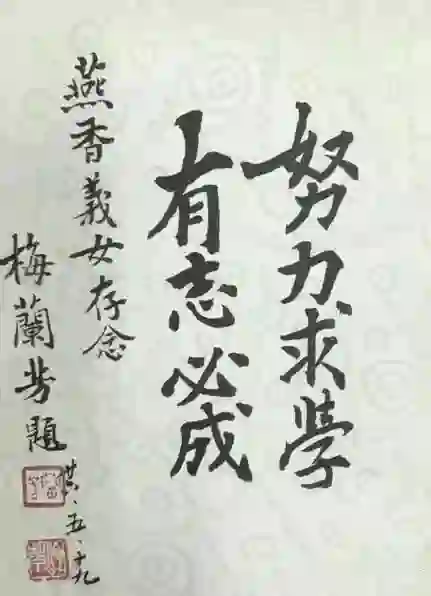 努力求學
有志必成
燕香義女存念
梅蘭芳題
五、十九